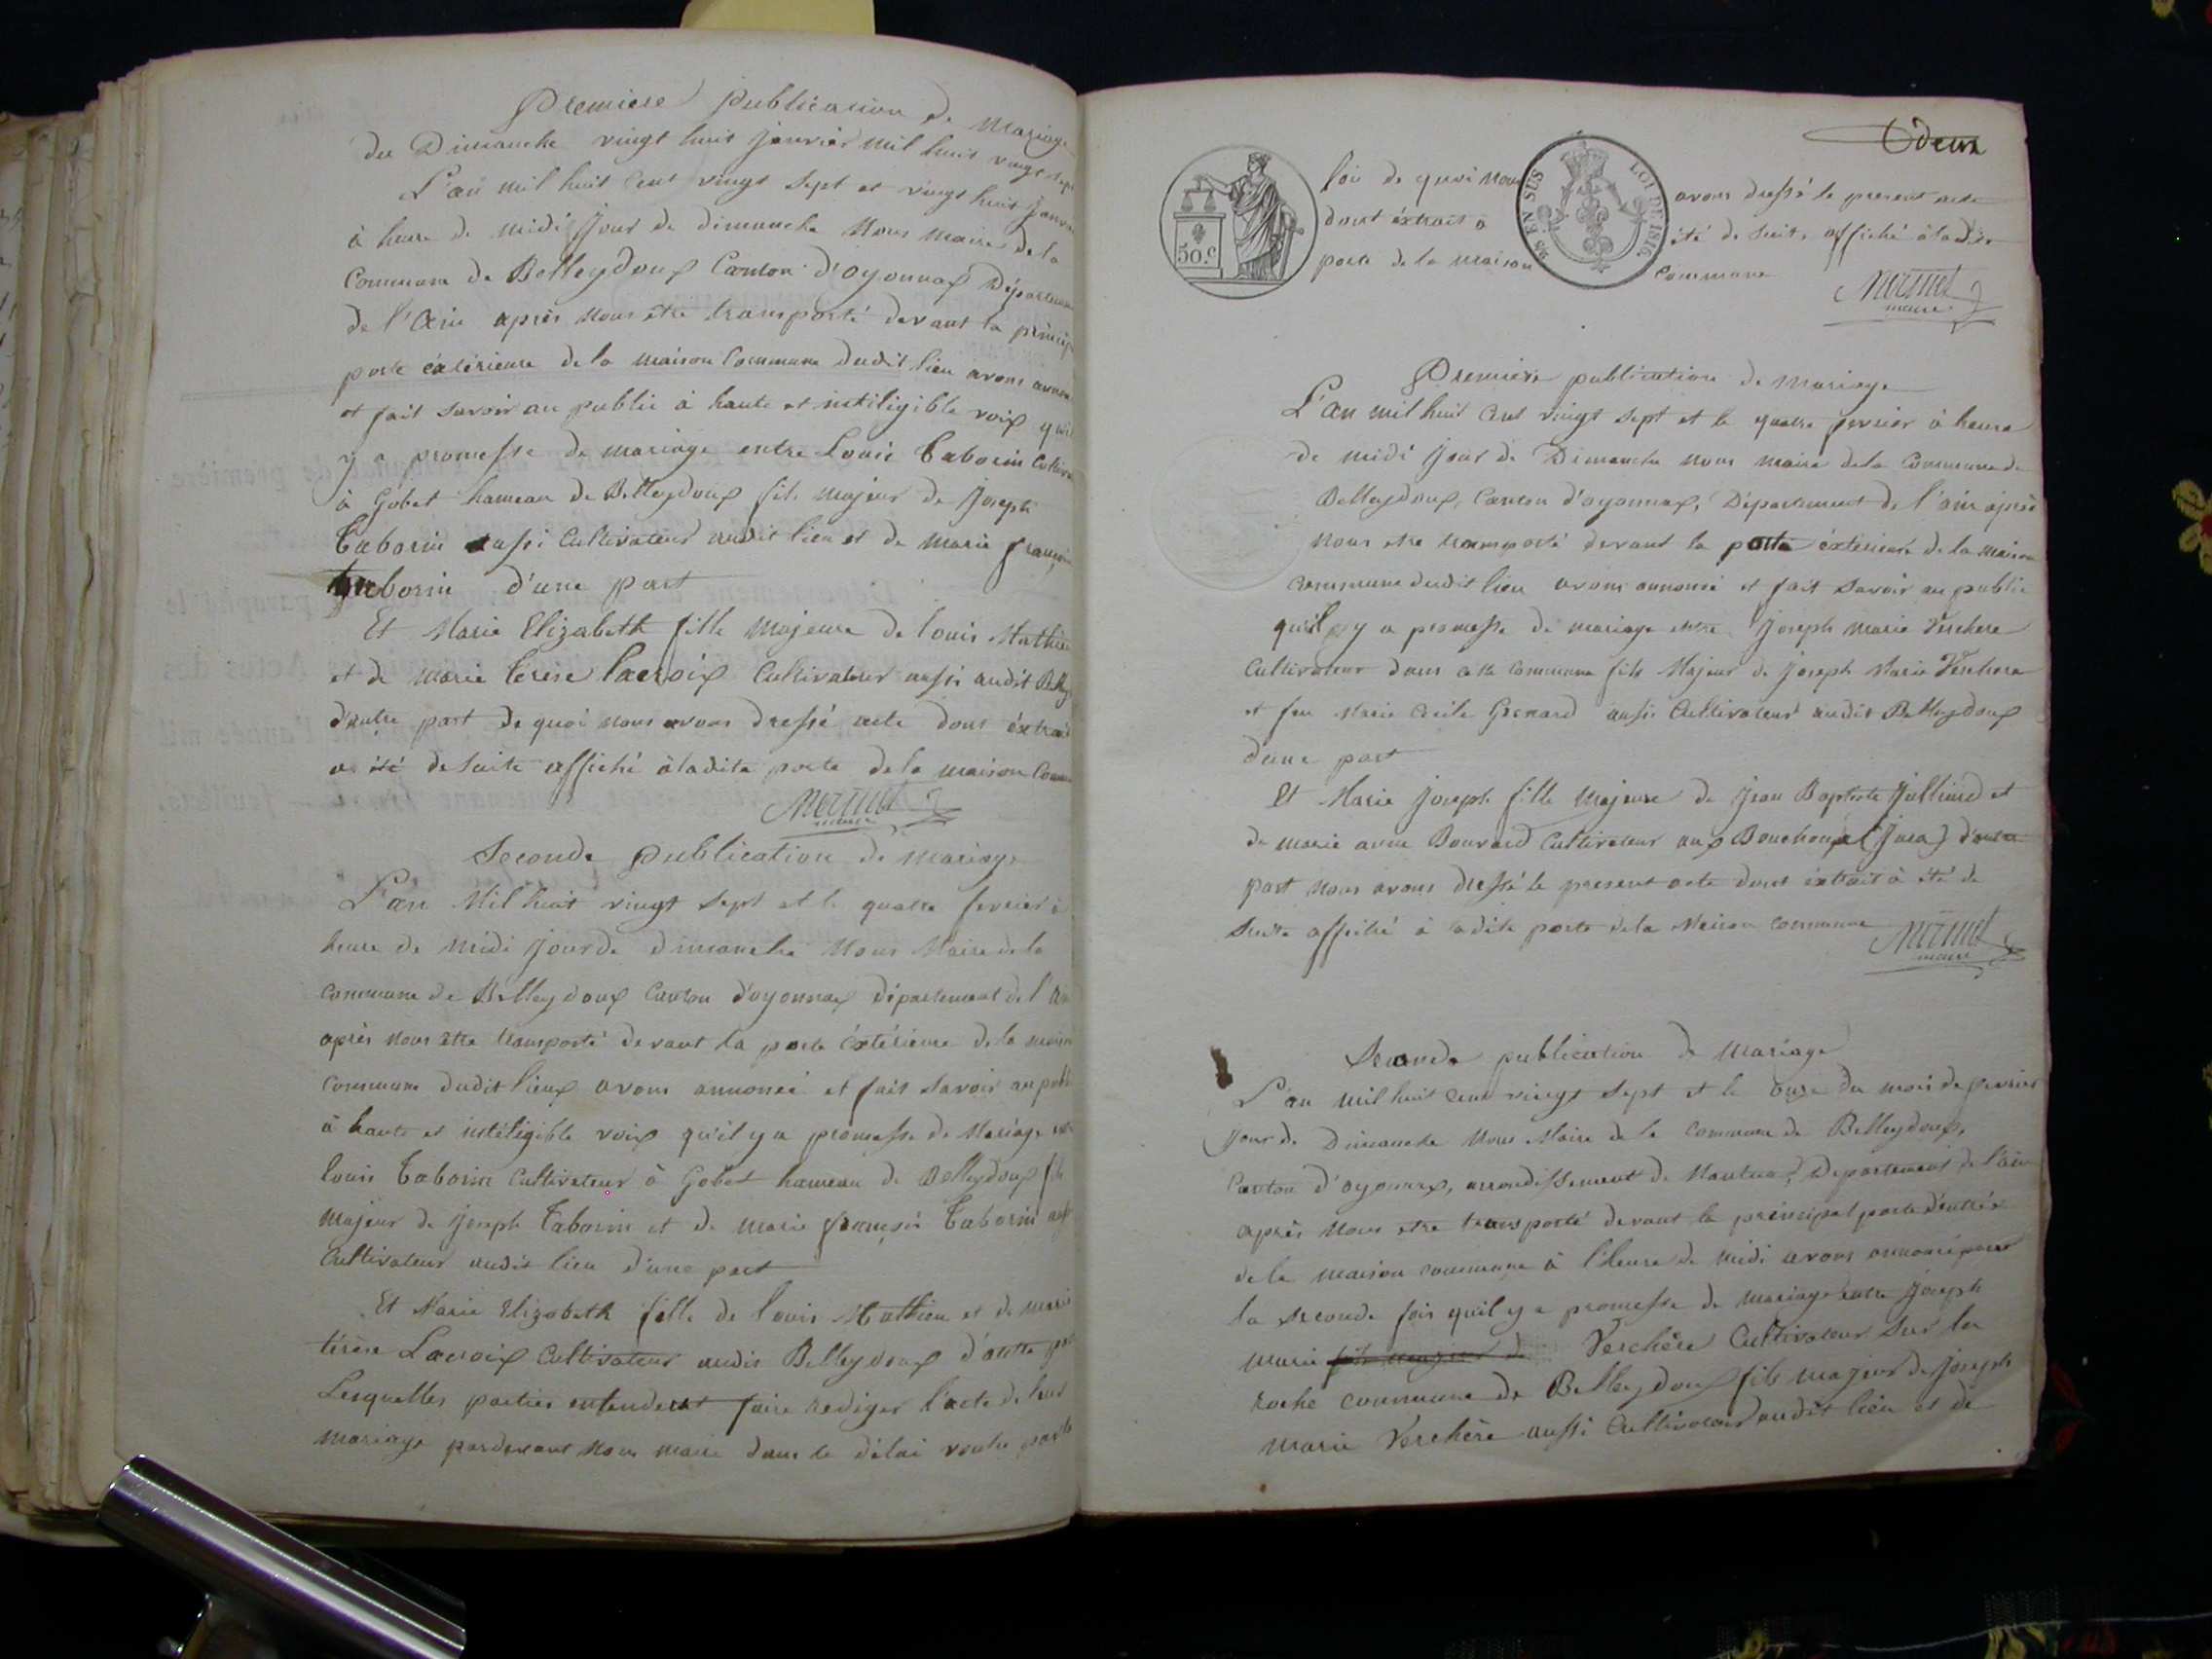 Premiere publication de Mariage
du Dimanche vingt huit janvier mil huit vingt sept
L'an mil huit cent vingt sept et vingt huit janvier
à heure de midi jour de dimanche Nous maire de la
Commune de Belleydoux Canton d'oyonnax Département
de l'Ain après nous être transporté devant la princip
porte éxtérieure de la maison Commune dudit lieu avons annon
et fait savoir au public à haute et intiligible voix quil
y a promesse de mariage entre Louis Taborin Cultiva
à Gobet hameau de Belleydoux fils majeur de Joseph
Taborin aussi Cultivateur audit lieu et de marie françoise
taborin d'une part
Et Marie Elizabeth fille Majeure de louis Mathieu
et de Marie terèse lacroix Cultivateur aussi audit Belley
d'autre part de quoi nous avons dressé acte dont éxtrait
a été de suite affiché à ladite porte de la maison Comm
Mermet
maire
Seconde publication de mariage
L'an Mil huit vingt sept et le quatre fevrier à
heure de midi jour de dimanche Nous Maire de la
commune de Belleydoux Canton d'oyonnax département de l'Ain
après nous être transporté devant la porte éxtérieure de la maison
commune dudit lieux avons annoncé et fait savoir au publi
à haute et intéligible voix qu'il y a promesse de Mariage entre
louis Taborin Cultivateur à Gobet hameau de Belleydoux fils
majeur de Joseph Taborin et de marie françoise Taborin aussi
Cultivateur audit lieu d'une part
Et Marie Elizabeth fille de louis Mathieu et de marie
térèse Lacroix Cultivateur audit Belleydoux d'autre part
Lesquelles parties entenderat faire rediger l'acte de leur
mariage pardevant Nous maire dans le délai voulu par la
deux
50.c
EN SUS
LOI DE 1816
foi de quoi Nous avons dressé le present acte
dont éxtrait a été de suite affiché à ladite
porte de la maison commune
Mermet
maire
Premiere publication de mariage
L'an mil huit cent vingt sept et le quatre fevrier à heure
de midi jour de Dimanche nous maire de la Commune de
Belleydoux, Canton d'oyonnax, Département de l'ain après
nous etre transporté devant la porte éxterieure de la maison
commune dudit lieu avons annoncé et fait savoir au public
qu'il y a promesse de mariage entre Joseph marie Verchere
Cultivateur dans cette commune fils Majeur de Joseph Marie Verchere
et feu Marie Cecile Grenard aussi Cultivateur audit Belleydoux
d'une part
Et Marie Joseph fille Majeure de Jean Baptiste Julliard et
de marie anne Bouvard Cultivateur aux Bouchoux (Jura) d'autre
part nous avons dressé le present acte dont éxtrait à été de
Suite affiché à ladite porte de la Maison commune
Mermet
maire
Seconde publication de Mariage
L'an mil huit cent vingt sept et le onze du mois de fevrier
jour de Dimanche Nous Maire de la commune de Belleydoux,
Canton d'oyonnax, arrondissement de Nantua, Departement de l'ain
après Nous etre transporté devant la principal porte d'entrée
de la maison commune à l'heure de midi avons annoncé pour
la seconde fois qu'il y a promesse de mariage entre Joseph
marie fils majeur de Verchère Cultivateur sur la
roche commune de Belleydoux fils majeur de Joseph
marie Verchère aussi Cultivateur audit lieu et de